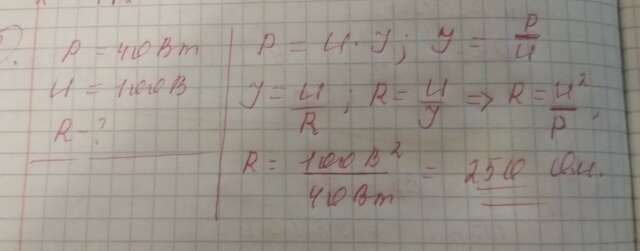 P = 40Вт
U = 100В
R - ?
P = U · I; I = P/U
I = U/R; R = U/I => R = U²/P,
R = 100В²/40Вт = 250 Ом.